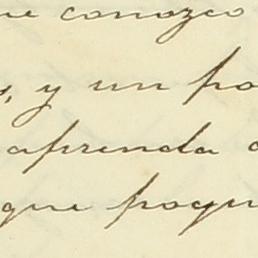 que conozco
y un po
aprenda
que poqu